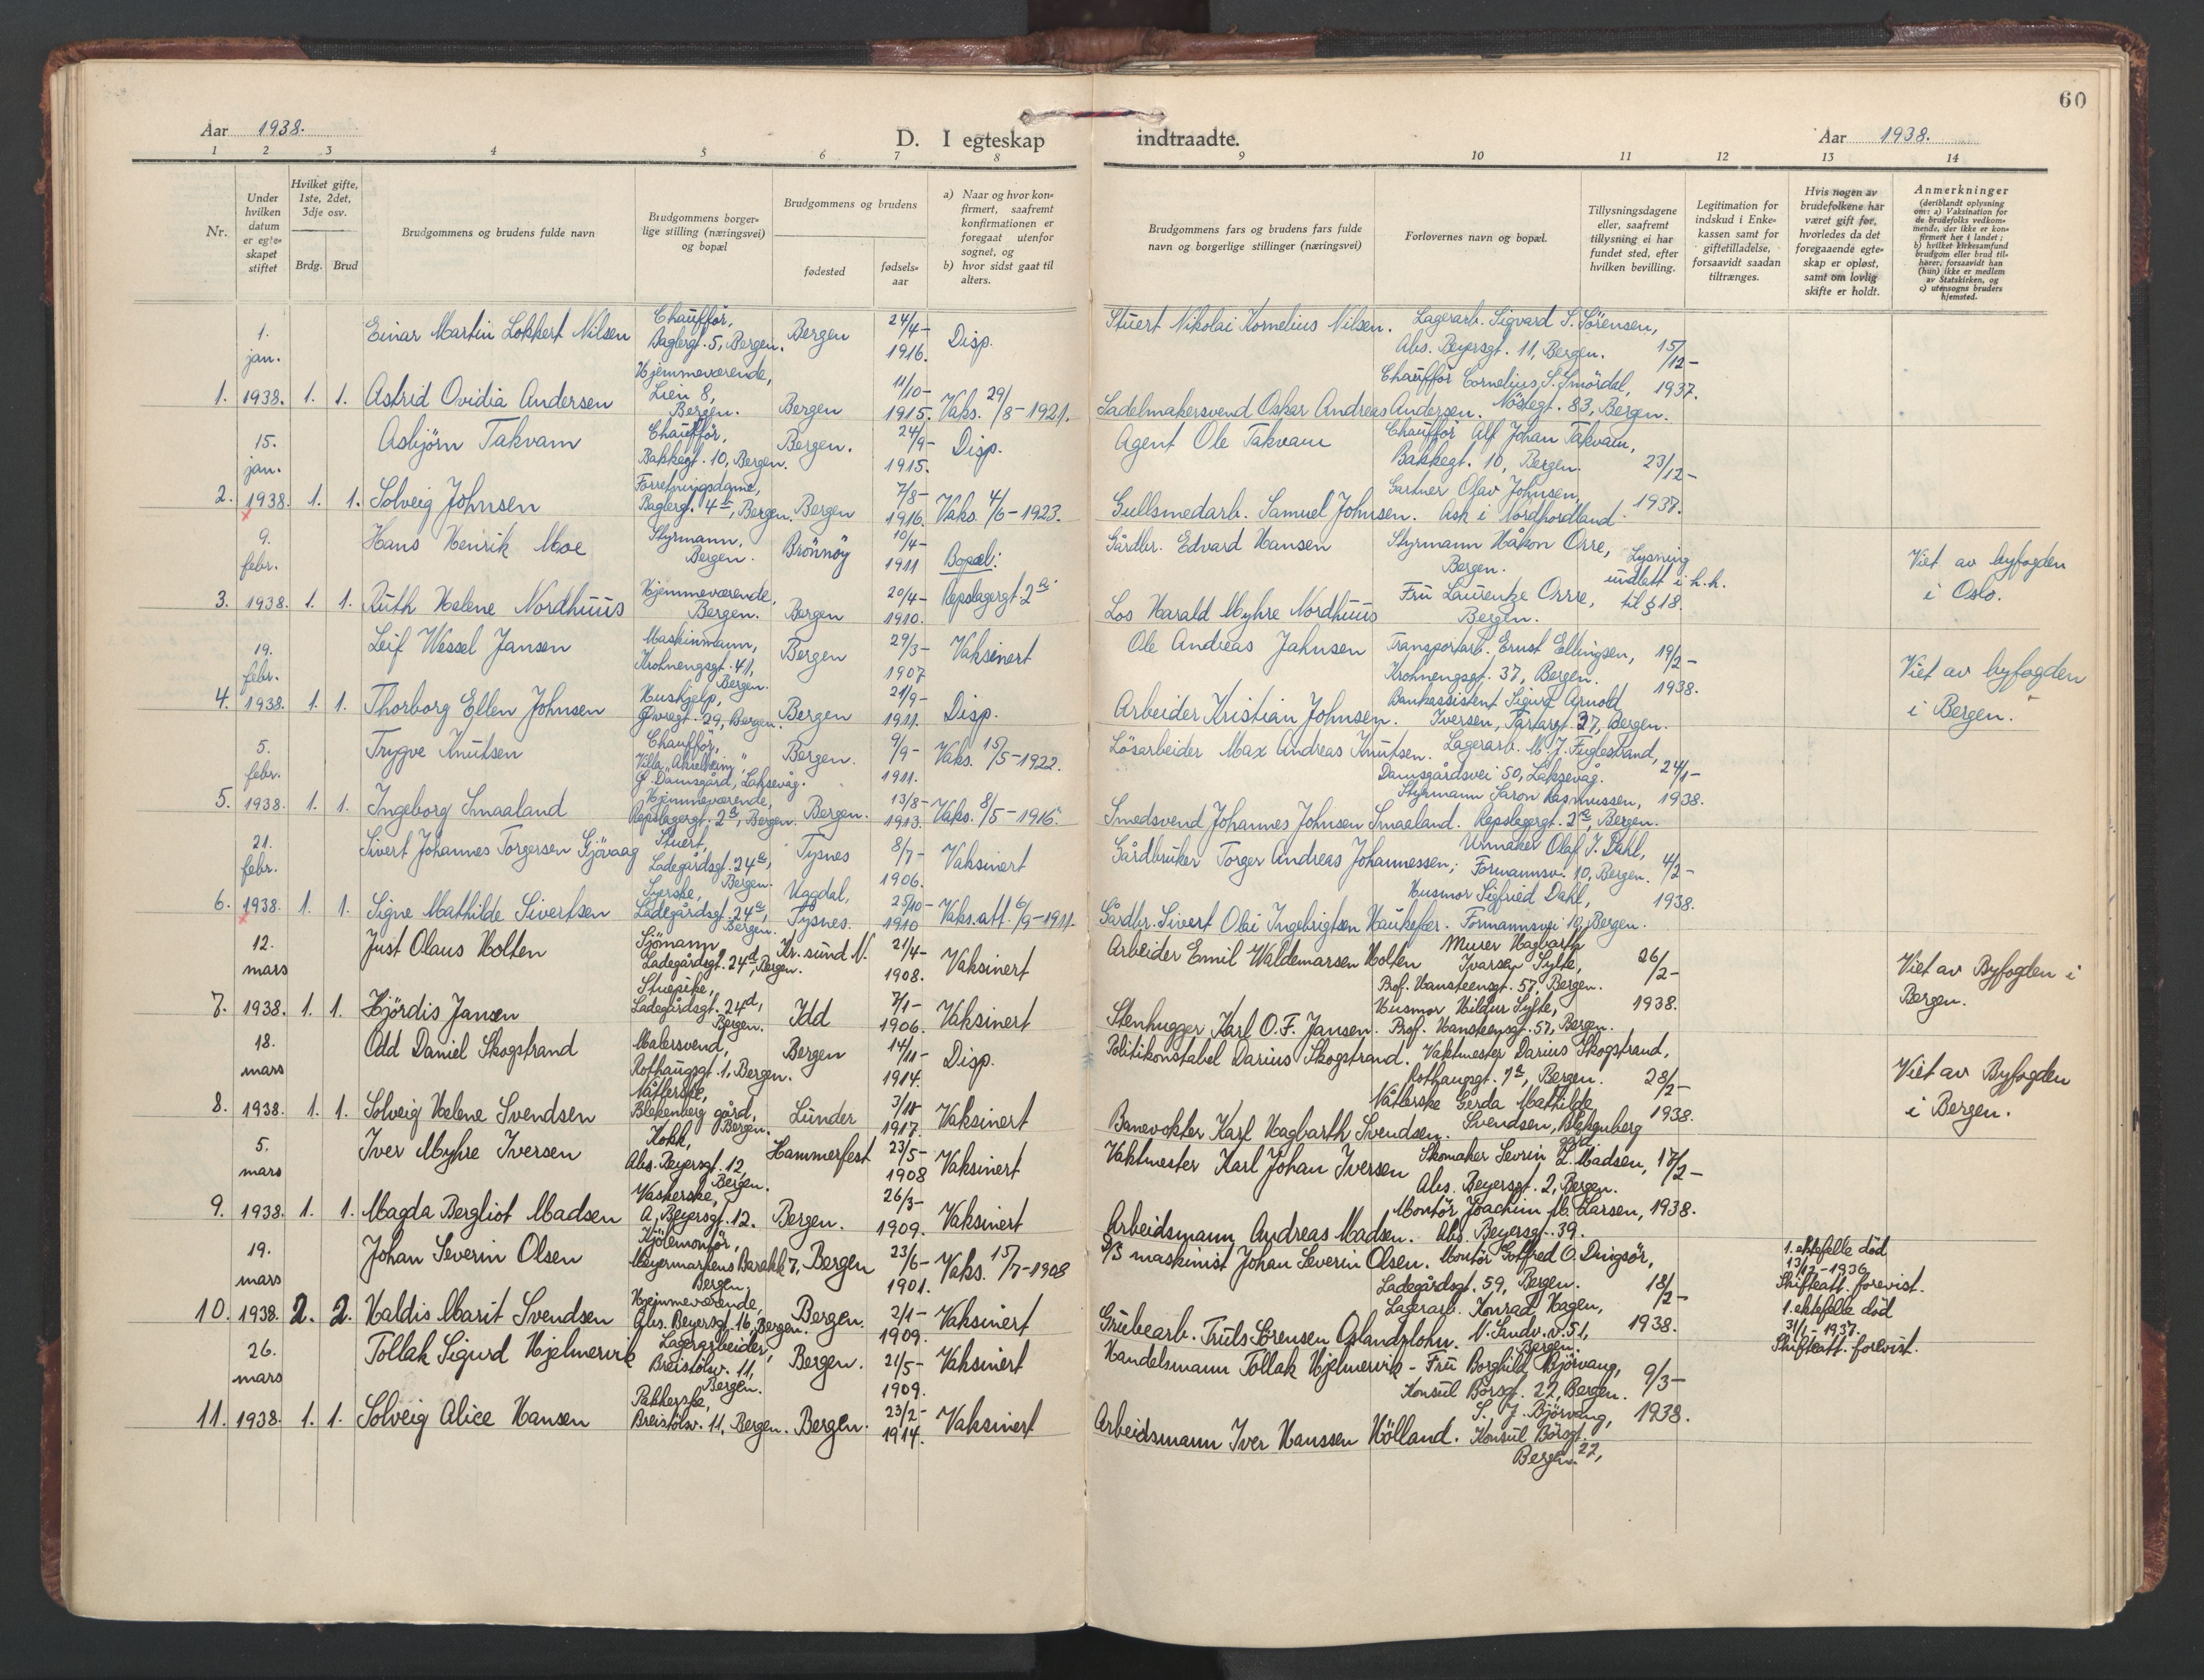 60
Aar 1938.
D. I egteskap indtraadte.
Aar 1938.
1 2 3 4 5 6 7 8 9 10 11 12 13 14
Nr.
Under hvilken datum er egteskapet stiftet
Hvilket gifte, 1ste, 2det, 3dje osv.
Brdg. Brud
Brudgommens og brudens fulde navn
Brudgommens borgerlige stilling (næringsvei) og bopæl
Brudgommens og brudens
fødested
fødselsaar
a) Naar og hvor konfirmert, saafremt konfirmationen er foregaat utenfor sognet, og
b) hvor sidst gaat til alters.
Brudgommens fars og brudens fars fulde navn og borgerlige stillinger (næringsvei)
Forlovernes navn og bopæl.
Tillysningsdagene eller, saafremt tillysning ei har fundet sted, efter hvilken bevilling.
Legitimation for indskud i Enkekassen samt for giftetilladelse, forsaavidt saadan tiltrænges.
Hvis nogen av brudefolkene har været gift før, hvorledes da det foregaaende egteskap er opløst, samt om lovlig skifte er holdt.
Anmerkninger
(deriblandt oplysning om: a) Vaksination for de brudefolks vedkommende, der ikke er konfirmert her i landet; b) hvilket kirkesamfund brudgom eller brud tilhører, forsaavidt han (hun) ikke er medlem av Statskirken, og c) utensogns bruders hjemsted.
1. jan. 1938.
Einar Martin Lokkert Nilsen
Chaufför, Baglergt. 5, Bergen.
Bergen
24/4-1916.
Disp.
Stuert Nikolai Kornelius Nilsen.
Lagerarb. Sigvard S. Sörensen, Abs. Beyersgt. 11, Bergen.
15/12-1937.
1. 1. 1.
Astrid Ovidia Andersen
Hjemmeværende, Lien 8, Bergen.
Bergen
11/10-1915.
Vaks. 29/8-1921.
Sadelmakersvend Oskar Andreas Andersen.
Chaufför Cornelius S. Smördal, Nöstegt. 83, Bergen.
15. jan. 1938.
Asbjörn Takvam
Chauffør, Bakkegt. 10, Bergen.
Bergen.
24/9-1915.
Disp.
Agent Ole Takvam
Chauffør Alf Johan Takvam, Bakkegt. 10, Bergen.
23/12-1937.
2. 1. 1.
Solveig Johnsen
Forretningsdame, Baglergt. 4a, Bergen.
Bergen
7/8-1916.
Vaks. 4/6-1923.
Gullsmedarb. Samuel Johnsen.
Gartner Olav Johnsen, Ask i Nordhordland.
9. febr. 1938.
Hans Henrik Moe
Styrmann, Bergen.
Brönnöy
10/4-1911
Bopæl:
Gårdbr. Edvard Hansen
Styrmann Håkon Orre, Bergen.
Lysning undlatt i h.h. til § 18.
Viet av byfogden i Oslo.
3. 1. 1.
Ruth Helene Nordhuus
Hjemmeværende, Bergen.
Bergen
20/4-1910.
Repslagergt. 2a
Los Harald Myhre Nordhuus
Fru Laurentze Orre, Bergen.
19. febr. 1938.
Leif Wessel Jansen
Maskinmann, Krohnengsgt. 41, Bergen.
Bergen
29/3-1907
Vaksinert
Ole Andreas Jahnsen
Transportarb. Ernst Ellingsen, Krohnengsgt. 37, Bergen.
19/2-1938.
Viet av byfogden i Bergen.
4. 1. 1.
Thorborg Ellen Johnsen
Hushjelp, Øvregt. 29, Bergen.
Bergen
21/9-1911.
Disp.
Arbeider Kristian Johnsen.
Bankassistent Sigurd Arnold Iversen, Tartargt. 27, Bergen.
5. febr. 1938.
Trygve Knutsen
Chauffør, Villa "Akreheim", G. Damsgård, Laksevåg.
Bergen.
9/9-1911.
Vaks. 15/5-1922.
Lösarbeider Max Andreas Knutsen.
Lagerarb. M. J. Fuglestrand, Damsgårdsvei 50, Laksevåg.
24/1-1938.
5. 1. 1.
Ingeborg Smaaland
Hjemmeværende, Repslagergt. 2a, Bergen.
Bergen.
13/8-1913.
Vaks. 8/5-1916.
Smedsvend Johannes Johnsen Smaaland.
Styrmann Saron Rasmussen, Repslagergt. 2a, Bergen.
21. febr. 1938.
Sivert Johannes Torgersen Gjövaag
Stuert, Ladegårdsgt. 24a, Bergen.
Tysnes
8/7-1906.
Vaksinert
Gårdbruker Torger Andreas Johannessen;
Urmaker Olaf J. Dahl, Formannsv. 10, Bergen.
4/2-1938.
6. 1. 1.
Signe Mathilde Sivertsen
Syerske, Ladegårdsgt. 24a, Bergen.
Uggdal, Tysnes.
25/10-1910
Vaks.att. 6/9-1911.
Gårdbr. Sivert Olai Ingebrigtsen Haukefær.
Husmor Sigfried Dahl, Formannsvei 10, Bergen.
12. mars 1938.
Just Olaus Holten
Sjömann, Ladegårdsgt. 24d, Bergen.
Kr.sund N.
21/4-1908.
Vaksinert
Arbeider Emil Waldemarsen Holten
Murer Hagbarth Ivarsen Sylte, Prof. Hansteensgt. 57, Bergen.
26/2-1938.
Viet av Byfogden i Bergen.
7. 1. 1.
Hjördis Jansen
Stuepike, Ladegårdsgt. 24d, Bergen.
Idd
7/1-1906.
Vaksinert
Stenhugger Karl O.F. Jansen.
Husmor Hildur Sylte, Prof. Hansteensgt. 57, Bergen.
18. mars 1938.
Odd Daniel Skogstrand
Malersvend, Rothaugsgt. 1, Bergen.
Bergen
14/11-1914.
Disp.
Politikonstabel Darius Skogstrand.
Vaktmester Darius Skogstrand, Rothaugsgt. 1a, Bergen.
28/2-1938.
Viet av Byfogden i Bergen.
8. 1. 1.
Solveig Helene Svendsen
Nåtlerske, Blekenberg gård, Bergen.
Lunder
1917.
Vaksinert
Banevokter Karl Hagbarth Svendsen.
Nåtlerske Gerda Mathilde Svendsen, Blekenberg
5. mars 1938.
Iver Myhre Iversen
Kokk, Abs. Beyersgt. 12, Bergen.
Hammerfest
23/5-1908
Vaksinert
Vaktmester Karl Johan Iversen
Skomaker Sevrin L. Madsen, Abs. Beyersgt. 2, Bergen.
17/2-1938.
9. 1. 1.
Magda Bergliot Madsen
Vaskerske, A. Beyersgt. 12.
Bergen.
26/3-1909.
Vaksinert
Arbeidsmann Andreas Madsen.
Montör Joachim M. Larsen, Abs. Beyersgt. 39.
19. mars 1938.
Johan Severin Olsen
Kjölemontör, Meyermarkens Barakk 7, Bergen
Bergen
23/6-1901.
Vaks. 15/7-1908
D/S maskinist Johan Severin Olsen.
Montör Gotfred O. Dingsör, Ladegårdsgt. 59, Bergen.
18/2-1938.
1. ektefelle död 13/12-1936 Skifteatt. forevist.
10. 2. 2.
Haldis Marit Svendsen
Hjemmeværende, Abs. Beyersgt. 16, Bergen.
Bergen.
2/1-1909.
Vaksinert
Grubearb. Truls Sörensen
Lagerarb. Konrad Hagen, N. Sandv.v. 51, Bergen.
1. ektefelle död 31/1-1937. Skifteatt. forevist.
26. mars 1938.
Tollak Sigurd Hjelmervik
Lagerarbeider, Breistölsv. 11, Bergen.
Bergen.
21/5-1909.
Vaksinert
Handelsmann Tollak Hjelmervik -
Fru Borghild Björvang, Konsul Börsgt. 22, Bergen.
9/3-1938.
11. 1. 1.
Solveig Alice Hansen
Pakkerske, Breistölsv. 11, Bergen.
Bergen.
23/2-1914.
Vaksinert
Arbeidsmann Iver Hanssen Hölland.
S. J. Björvang, Konsul Börsgt. 22, Bergen.